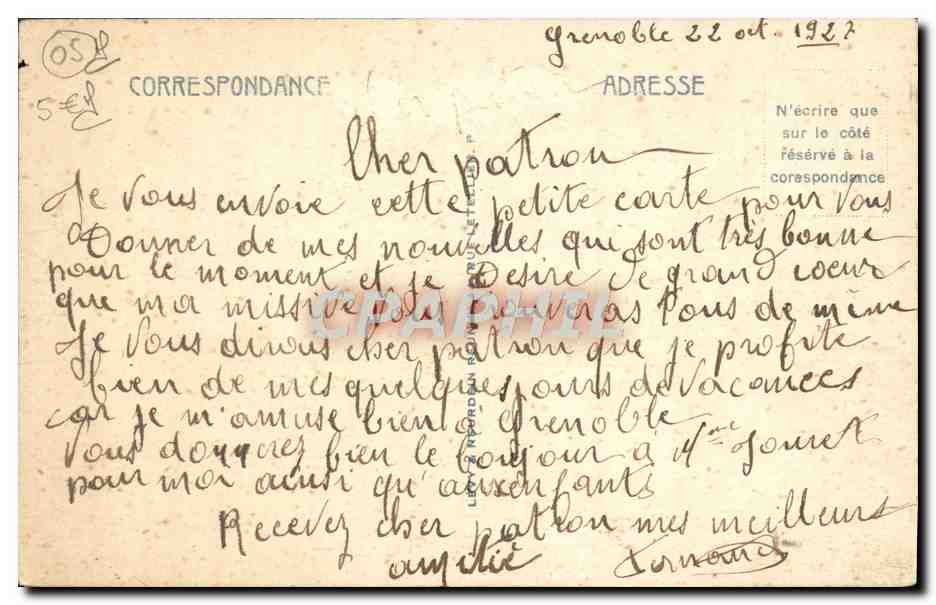 Grenoble 22 oct. 1927
05
5€
CORRESPONDANCE
ADRESSE
N'écrire que
sur le côté
réservé à la
corespondance
Cher patron
Je vous envoie cette petite carte pour vous
Donner de mes nouvelles qui sont très bonne
pour le moment et je Desire de grand coeur
que ma missive vous trouveras tous de même
Je vous dirais cher patron que je profite
bien de mes quelques jours de vacances
car je m'amuse bien à Grenoble
Vous donnerez bien le bonjour à Mme
pour moi ainsi qu'aux enfants
Recevez cher patron mes meilleurs
amitié Fernand
CPAPHIL
LEVY & NEURDEIN REUNIS RUE LETELLIER. P